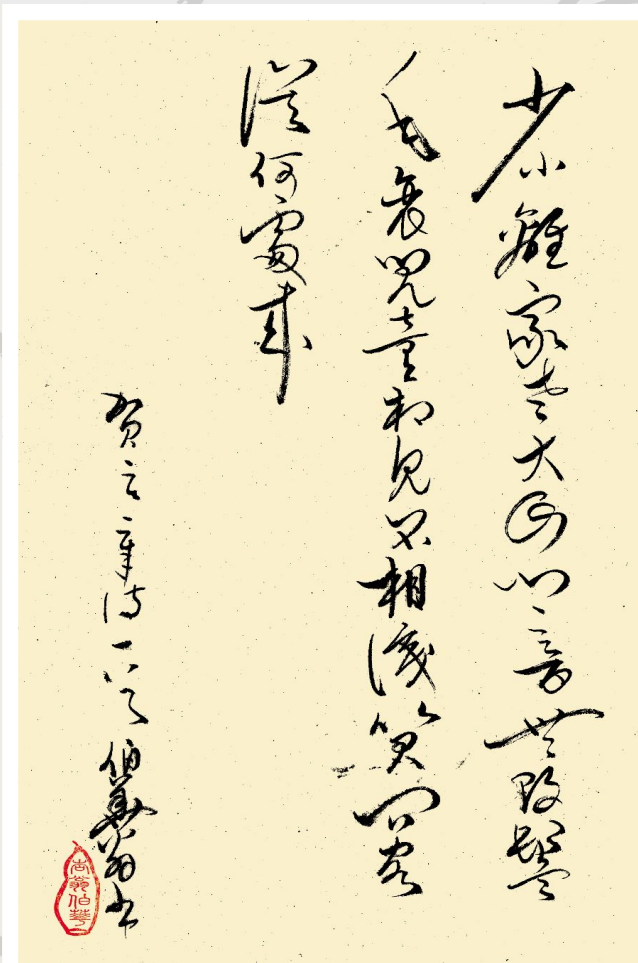 少小離家老大回鄉音無改鬢
毛衰兒童相見不相識笑問客
從何處來
賀知章詩一首 伯華翁書